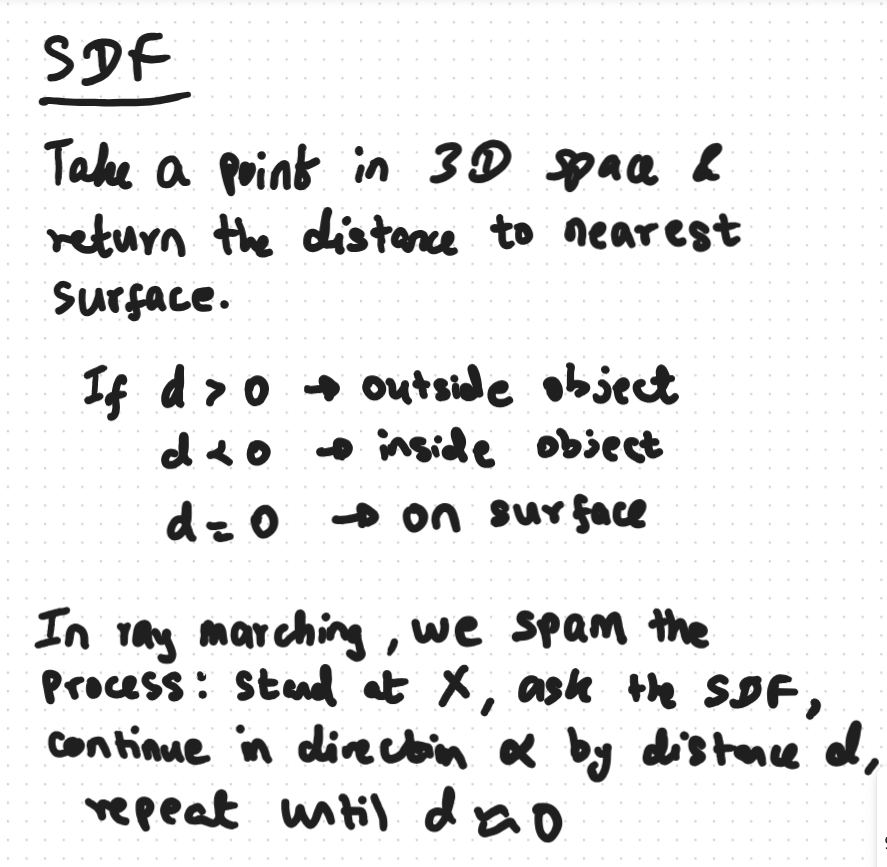 SDF
Take a point in 3D space &
return the distance to nearest
surface.
If d > 0 → outside object
d < 0 → inside object
d = 0 → on surface
In ray marching, we spam the
process: stand at X, ask the SDF,
continue in direction α by distance d,
repeat until d ≈ 0